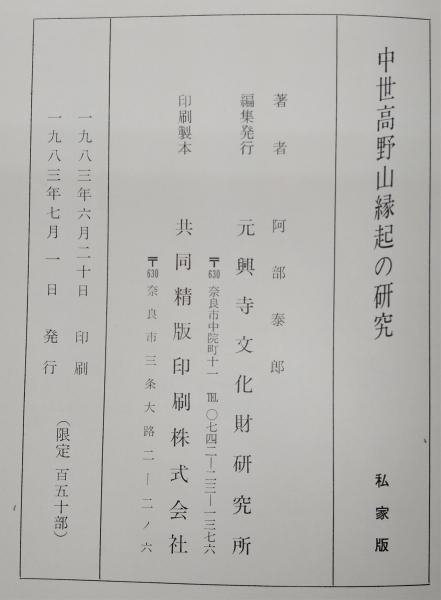 中世高野山縁起の研究
私家版
著者 阿部泰郎
編集発行 元興寺文化財研究所
〒630 奈良市中院町十一 ℡〇七四二―二三―一三七六
印刷製本 共同精版印刷株式会社
〒630 奈良市三条大路二―二ノ六
一九八三年六月二十日 印刷
一九八三年七月一日 発行
(限定 百五十部)